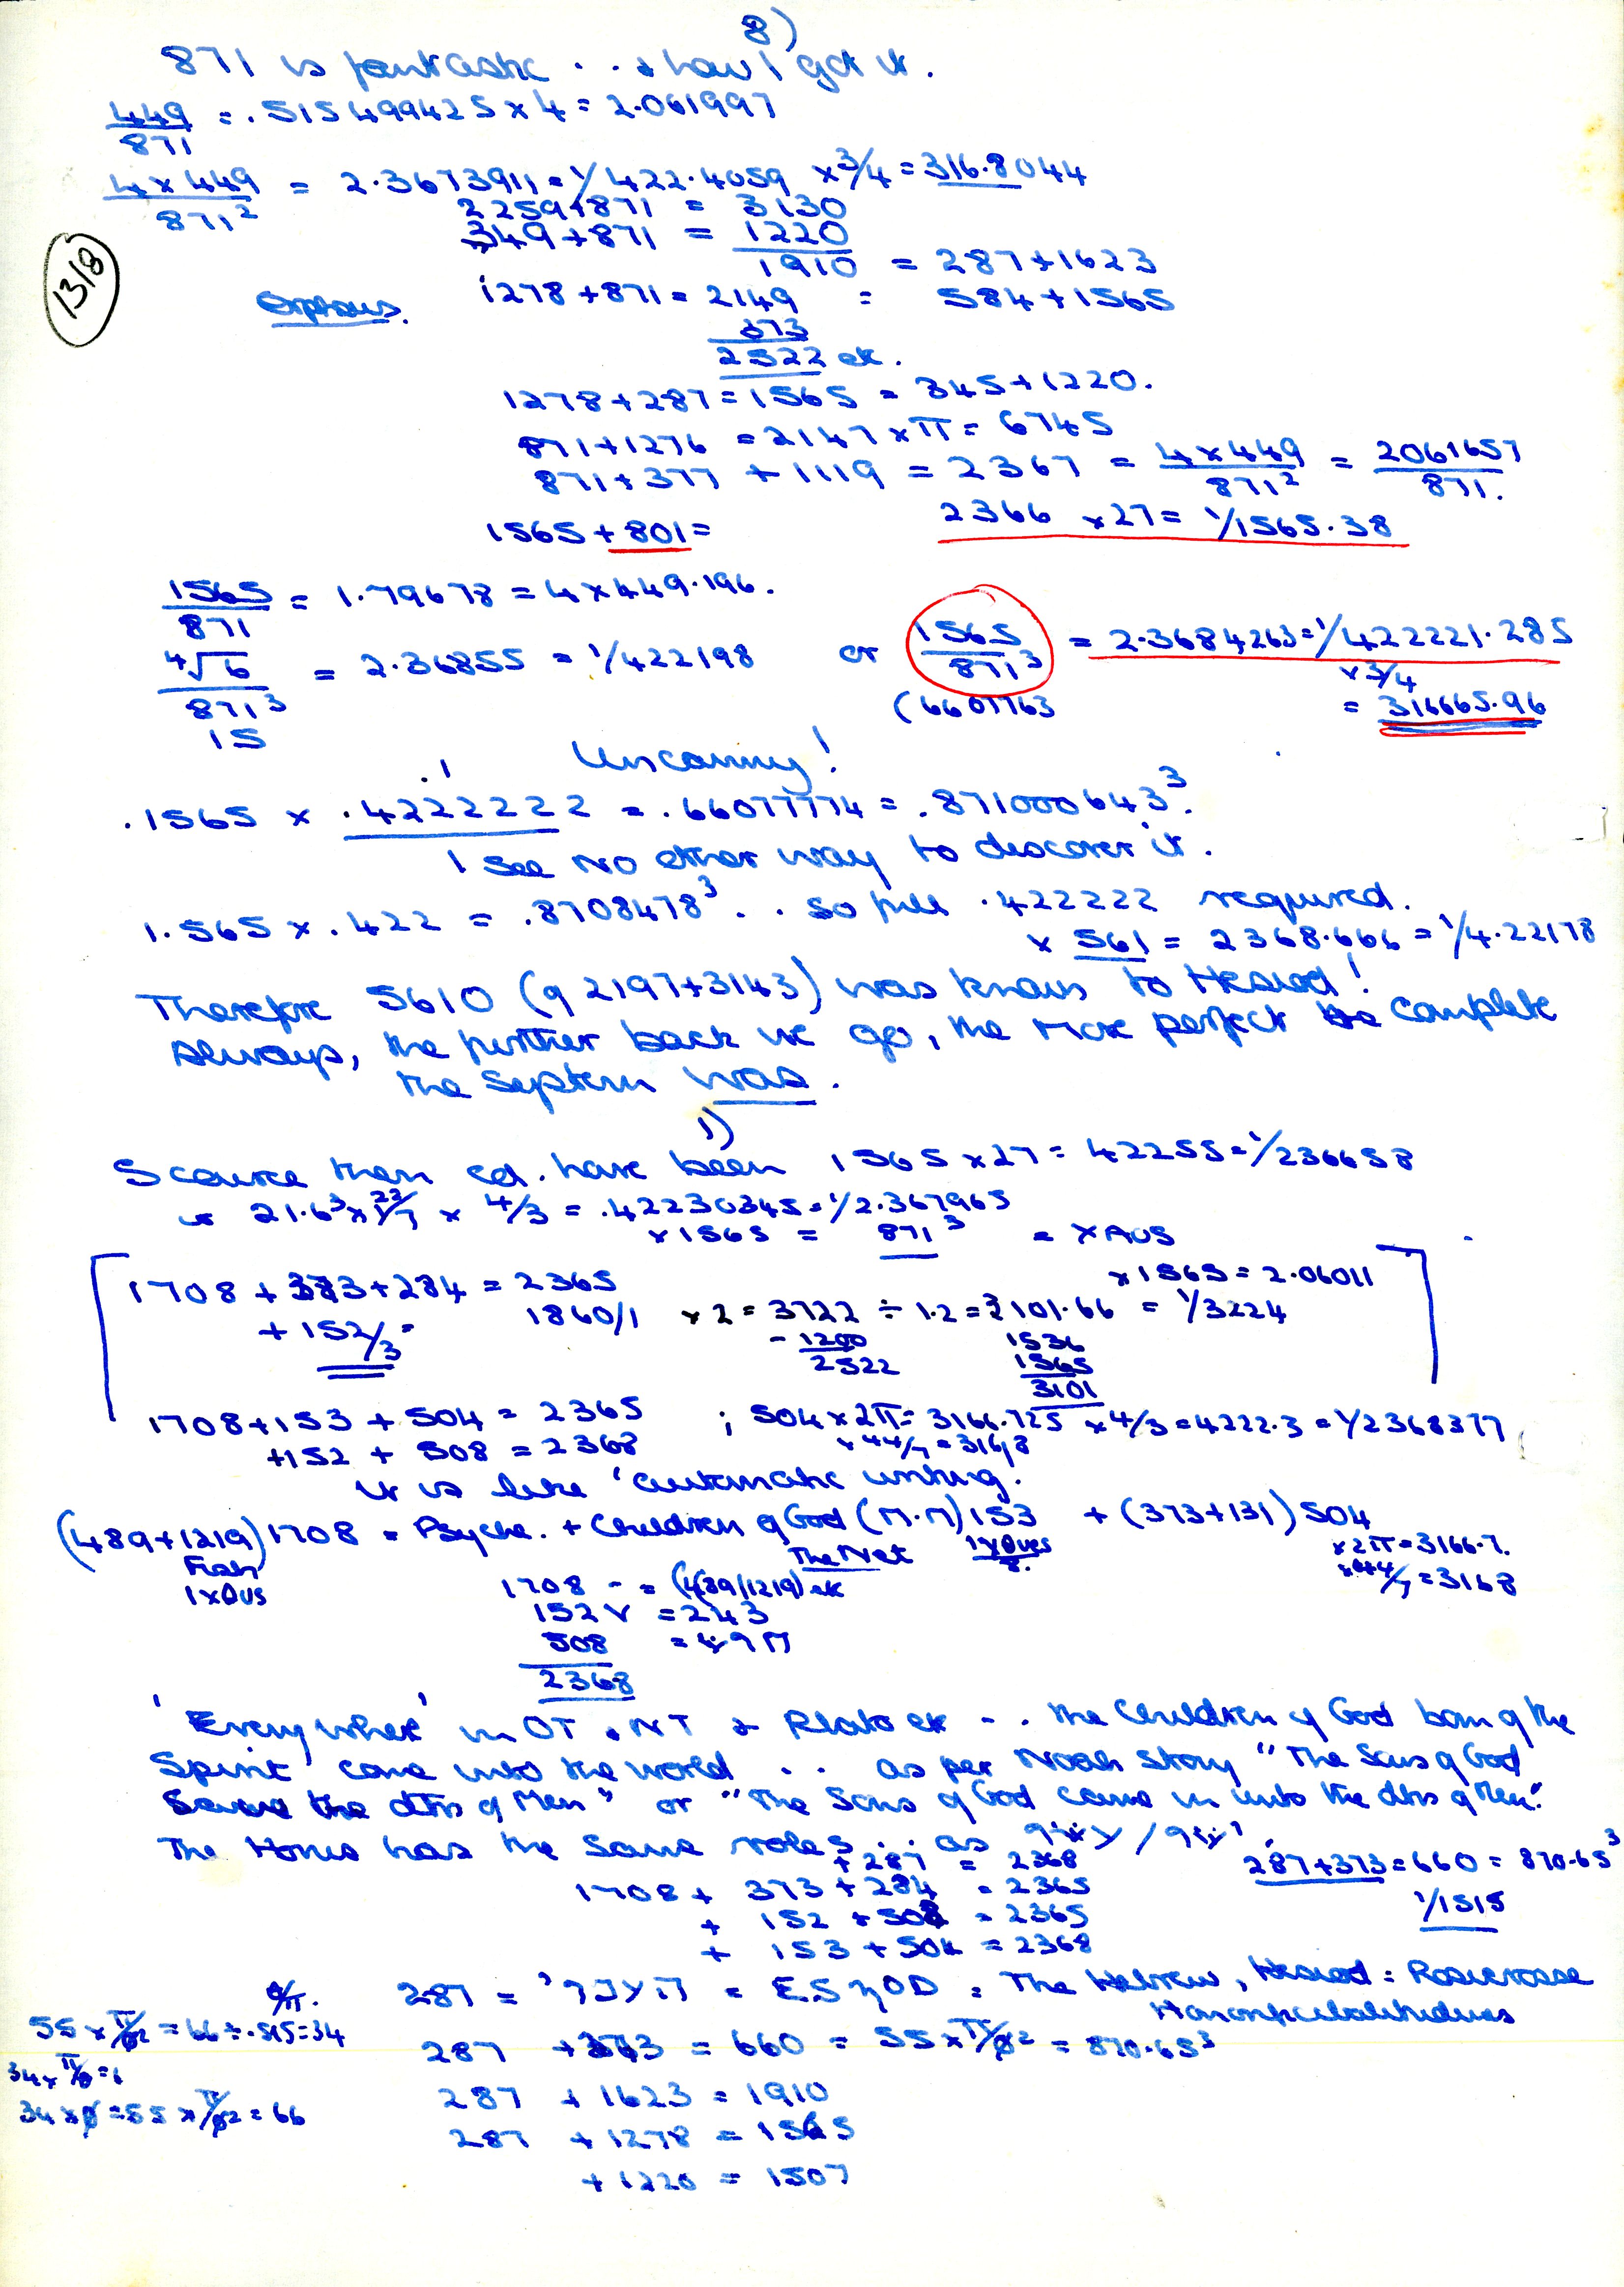 8)
871 is fantastic . . & how I got it.
449/871 = .515499425 x 4 = 2.061997
4x449/871² = 2.3673911 = 1/422.4059 x 3/4 = 316.8044
2259+871 = 3130
1318
349+871 = 1220
1910 = 287+1623
1278+871 = 2149 = 584+1565
373
2522 etc.
1278+287=1565 = 345+1220.
871+1276 = 2147 x π = 6745
871+377 + 1119 = 2367 = 4x449/871² = 2061657/871.
1565+801= 2366 x27= 1/1565.38
1565/871 = 1.79678 = 4x449.196.
⁴√6/871³ = 2.36855 = 1/422198 or 1565/871³ = 2.3684263=1/422221.285
x3/4
15 (6607763 = 316665.96
Uncanny!
.1
.1565 x .4222222 = .66077774 = .871000643³.
I see no other way to discover it.
1.565 x .422 = .8708478³ . . so full .422222 required.
x 561 = 2368.666 = 1/4.22178
Therefore 5610 (of 2197+3143) was known to Hesiod!
Always, the further back we go, the more perfect & complete
the system was.
1)
Source then cd. have been 1565 x27 = 42255=1/236658
or 21.6³x22/7 x 4/3 = .42230345=1/2.367965
x1565 = 871³ = XAOS
x1565=2.06011
1708 + 373+284 = 2365
+ 152/3 = 1860/1 x2 = 3722 ÷ 1.2 = 3101.66 = 1/3224
-1200 1536
2522 1565
3101
1708+153 + 504 = 2365 ; 504 x 2π = 3166.725 x 4/3 = 4222.3 = 1/2368377
+152 + 508 = 2368 x44/7 = 3168
it is like 'automatic writing.
(489+1219) 1708 = Psyche. + Children of God (Π.Π) 153 + (373+131) 504
Fish The Net 1x0ves x2π=3166.7.
1xθus 8. x44/7=3168
1708 - = (489/1219) etc
152 v = 243
508 = 49Π
2368
'Everywhere' in OT & NT & Plato etc - . the Children of God born of the
Spirit come into the world . . as per Noah story "The Sons of God
the dtrs of Men" or "The Sons of God came in unto the dtrs of Men."
The Horus has the same roles . . as
+287 = 2368 287+373=660 = 870.65³
1708 + 373+284 = 2365 1/1515
+ 152 +508 = 2365
+ 153 + 504 = 2368
287 = = ESγOD = The Hebrew, Hesiod = Rosicrosse
55 x π/φ2 = 66 ÷ .515=34
287 +373 = 660 = 55xπ/φ2 = 870.65³
34x π/φ=6
287 + 1623 = 1910
34xφ=55 x π/φ2 = 66
287 + 1278 = 1565
+ 1220 = 1507